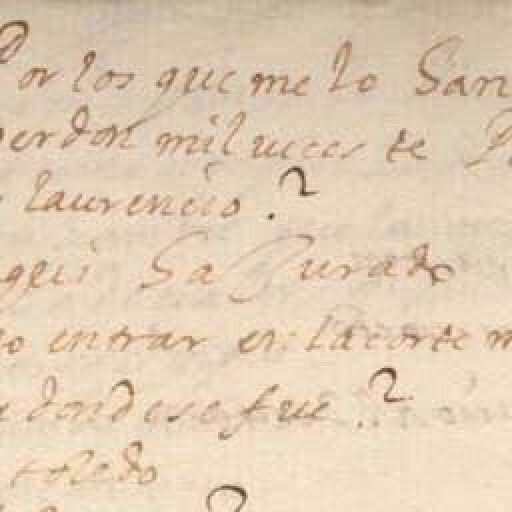 Por los que me lo San
perdon mil veces te P
laurencio ?
geis Sa Jurado
no entrar en la corte m
a donde se fue . ?
toledo
?